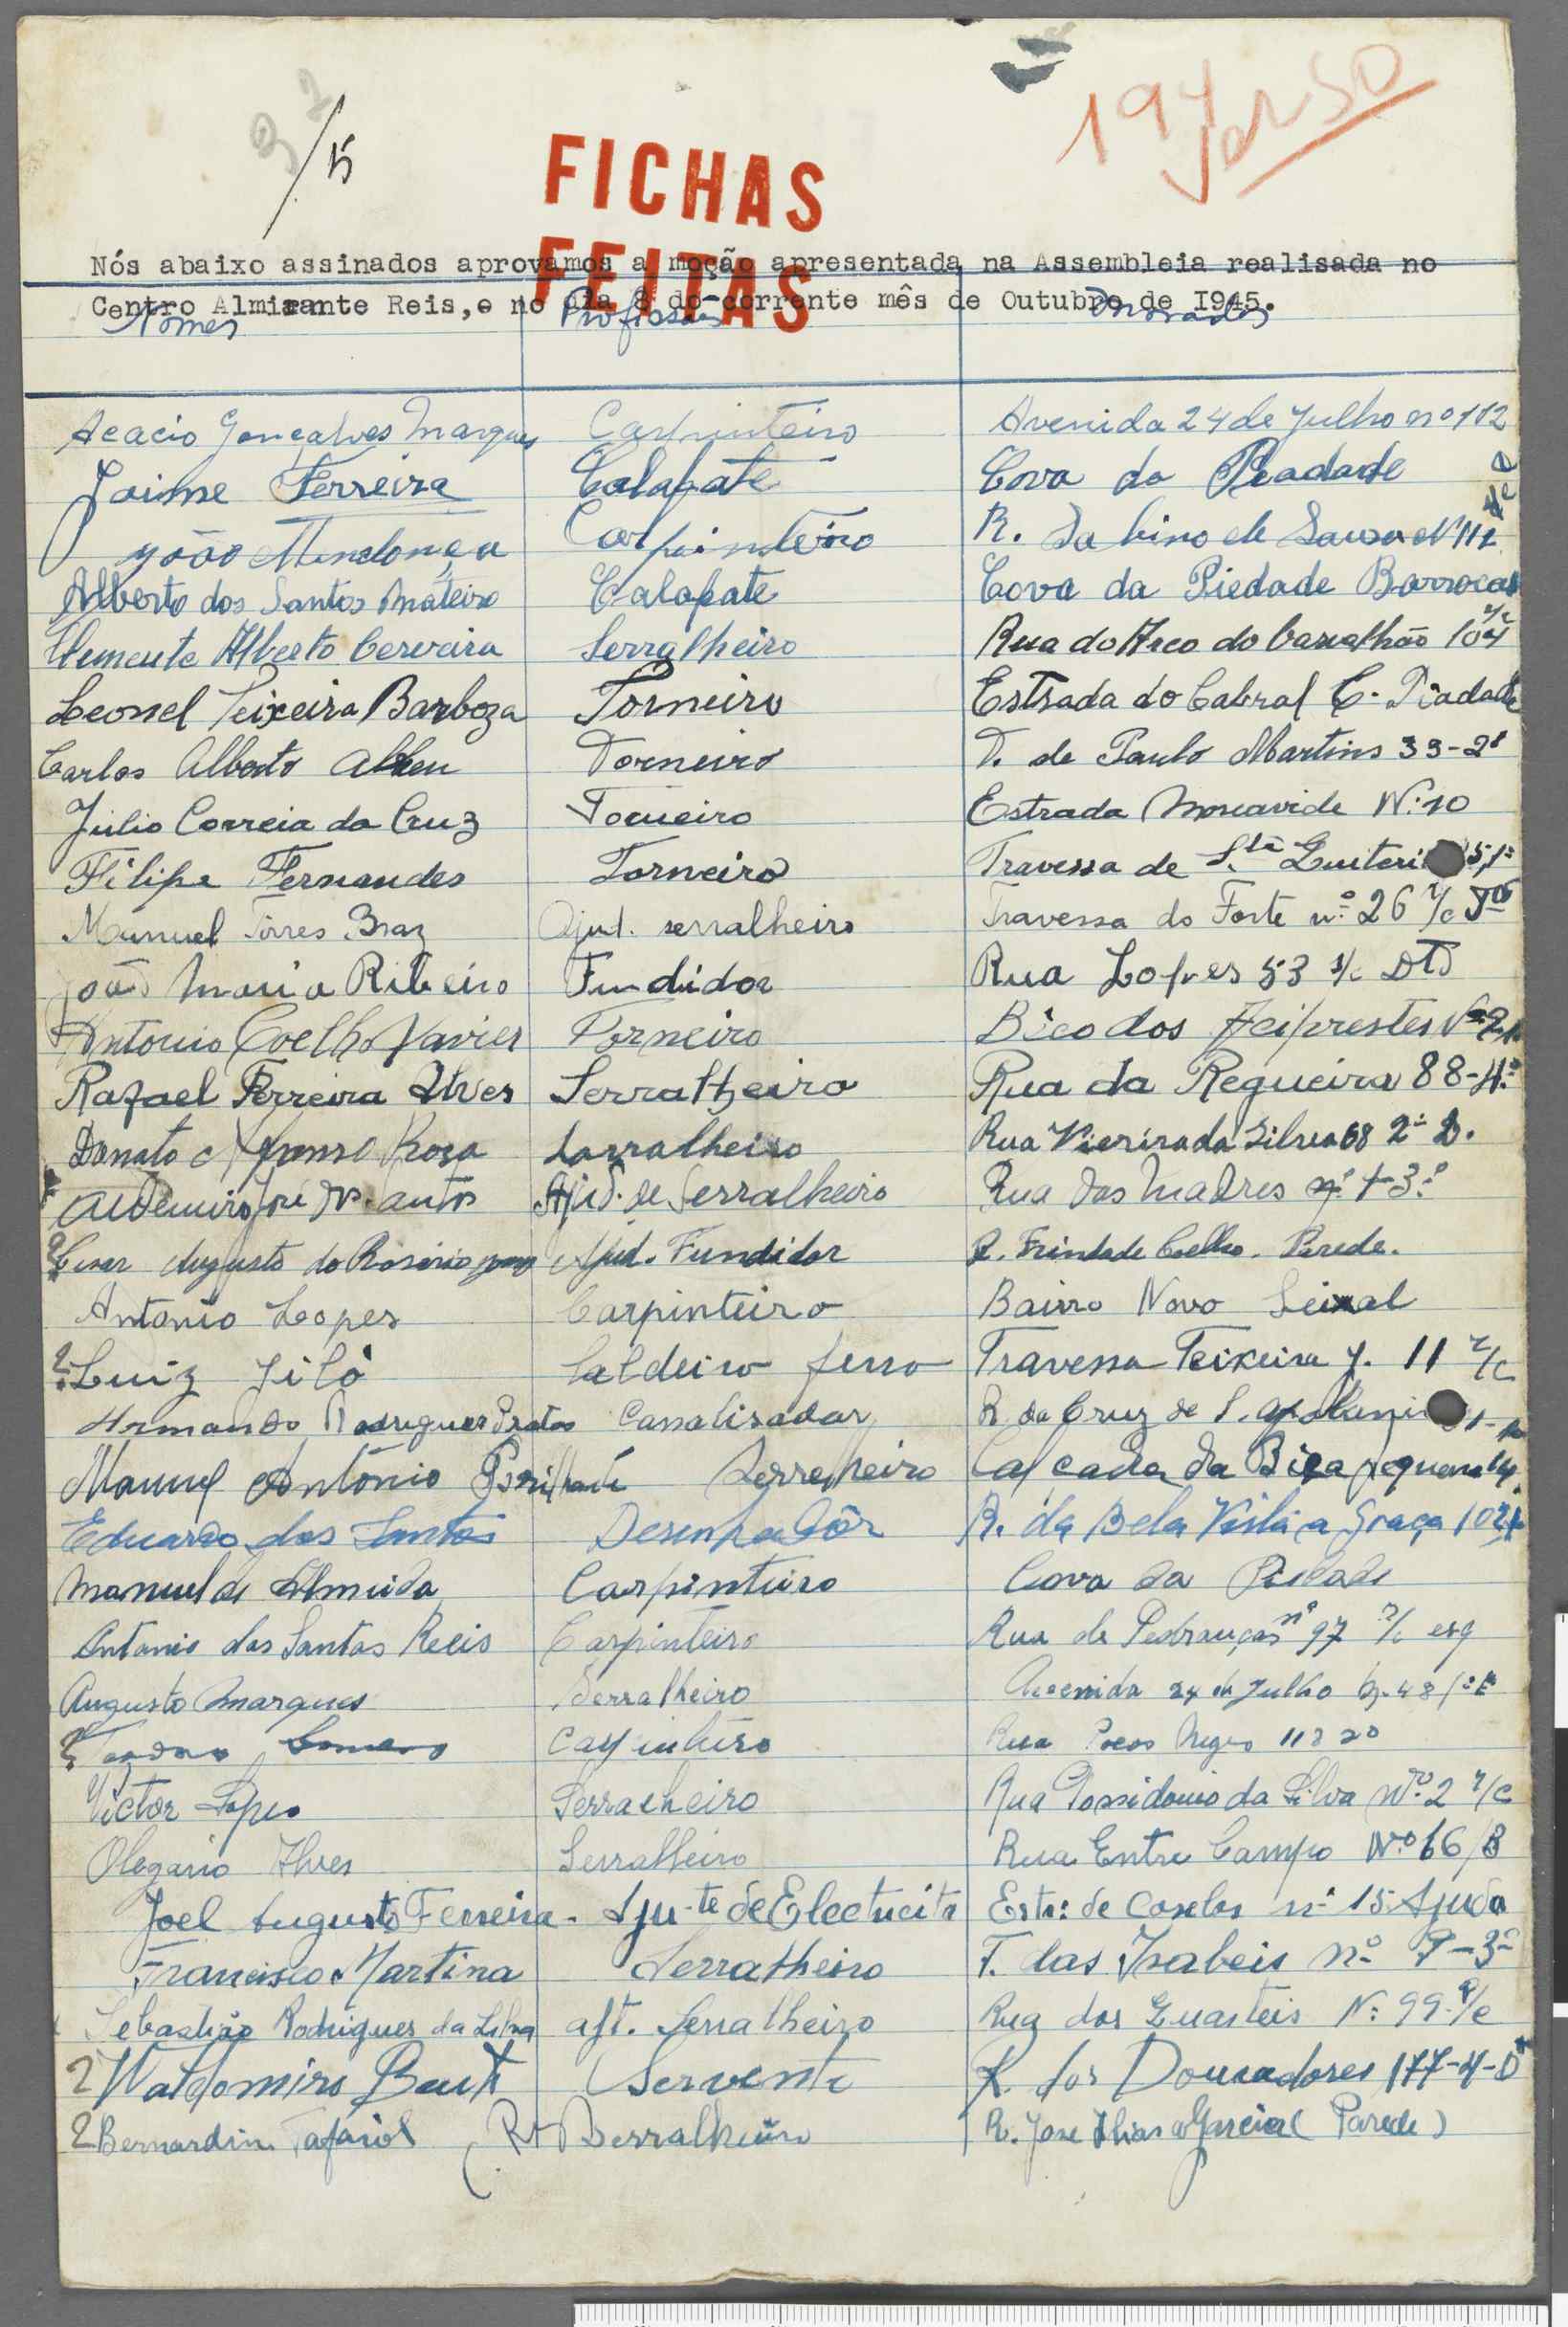 15
FICHAS
FEITAS
Nós abaixo assinados aprovamos a moção apresentada na Assembleia realisada no
Centro Almirante Reis, e no dia 8 do corrente mês de Outubro de I945.
Nomes Profissões Moradas
Acacio Gonçalves Marques Carpinteiro Avenida 24 de Julho nº 112
Jaime Ferreira Calafate Cova da Piadade
João Mendonça Carpinteiro R. Sabino de Sousa Nº 112
Alberto dos Santos Mateiro Calafate Cova da Piedade Barrocas
Clemente Alberto Cerveira Serralheiro Rua do Arco do Carvalhão 104 r/c
Leonel Teixeira Barboza Torneiro Estrada do Cabral C. Piadade
Carlos Alberto Abreu Torneiro T. de Paulo Martins 33-2º
Júlio Correia da Cruz Torneiro Estrada Moscavide Nº 10
Filipe Fernandes Torneiro Travessa de S.ta Quiteri 1º
Manuel Torres Braz Ajud. serralheiro Travessa do Forte nº 26 r/c
João Maria Ribeiro Fundidor Rua Lopes 53 r/c DTO
Antonio Coelho Xavier Torneiro dos
Rafael Ferreira Alves Serralheiro Rua da Regueira 88-4.º
Donato Afonso Rosa Sarralheiro Rua Vieira da Silva 68 2º D.
José Ajud. de Serralheiro Rua das Madres nº 3.º
Cesar Augusto do Rosário Ajud. Fundidor R. Trindade Coelho. Parede.
Antonio Lopes Carpinteiro Bairro Novo Seixal
Luiz Filó Caldeiro ferro Travessa Teixeira J. 11 r/c
Armando Rodrigues Pratas Canalisador R. da Cruz de S. Apoloni
Manuel António Serralheiro Calçada da Bica pequena 14
Eduardo dos Santos Desenhadôr R. da Bela Vista a Graça 102
Manuel de Almeida Carpinteiro Cova da Piedade
Antonio dos Santos Reis Carpinteiro Rua de nº 97 r/c esq
Augusto Marques Serralheiro Avenida 24 de Julho 48 1º E
Carpinteiro Rua Pocos Negro
Victor Lopes Serralheiro Rua Possidonio da Silva Nº 2 r/c
Olegario Alves Serralheiro Rua Entre Campo Nº 66/B
Joel Augusto Ferreira Aju-te de Electricista Estr: de Caselas nº 15 Ajuda
Francisco Martins Serralheiro T. das Isabeis nº 3º
Sebastião Rodrigues da Silva Serralheiro Rua dos Quarteis Nº 99 r/c
Waldomiro Servente R. dos Douradores 177-4-D
Bernardin Serralheiro R. José (Parede)